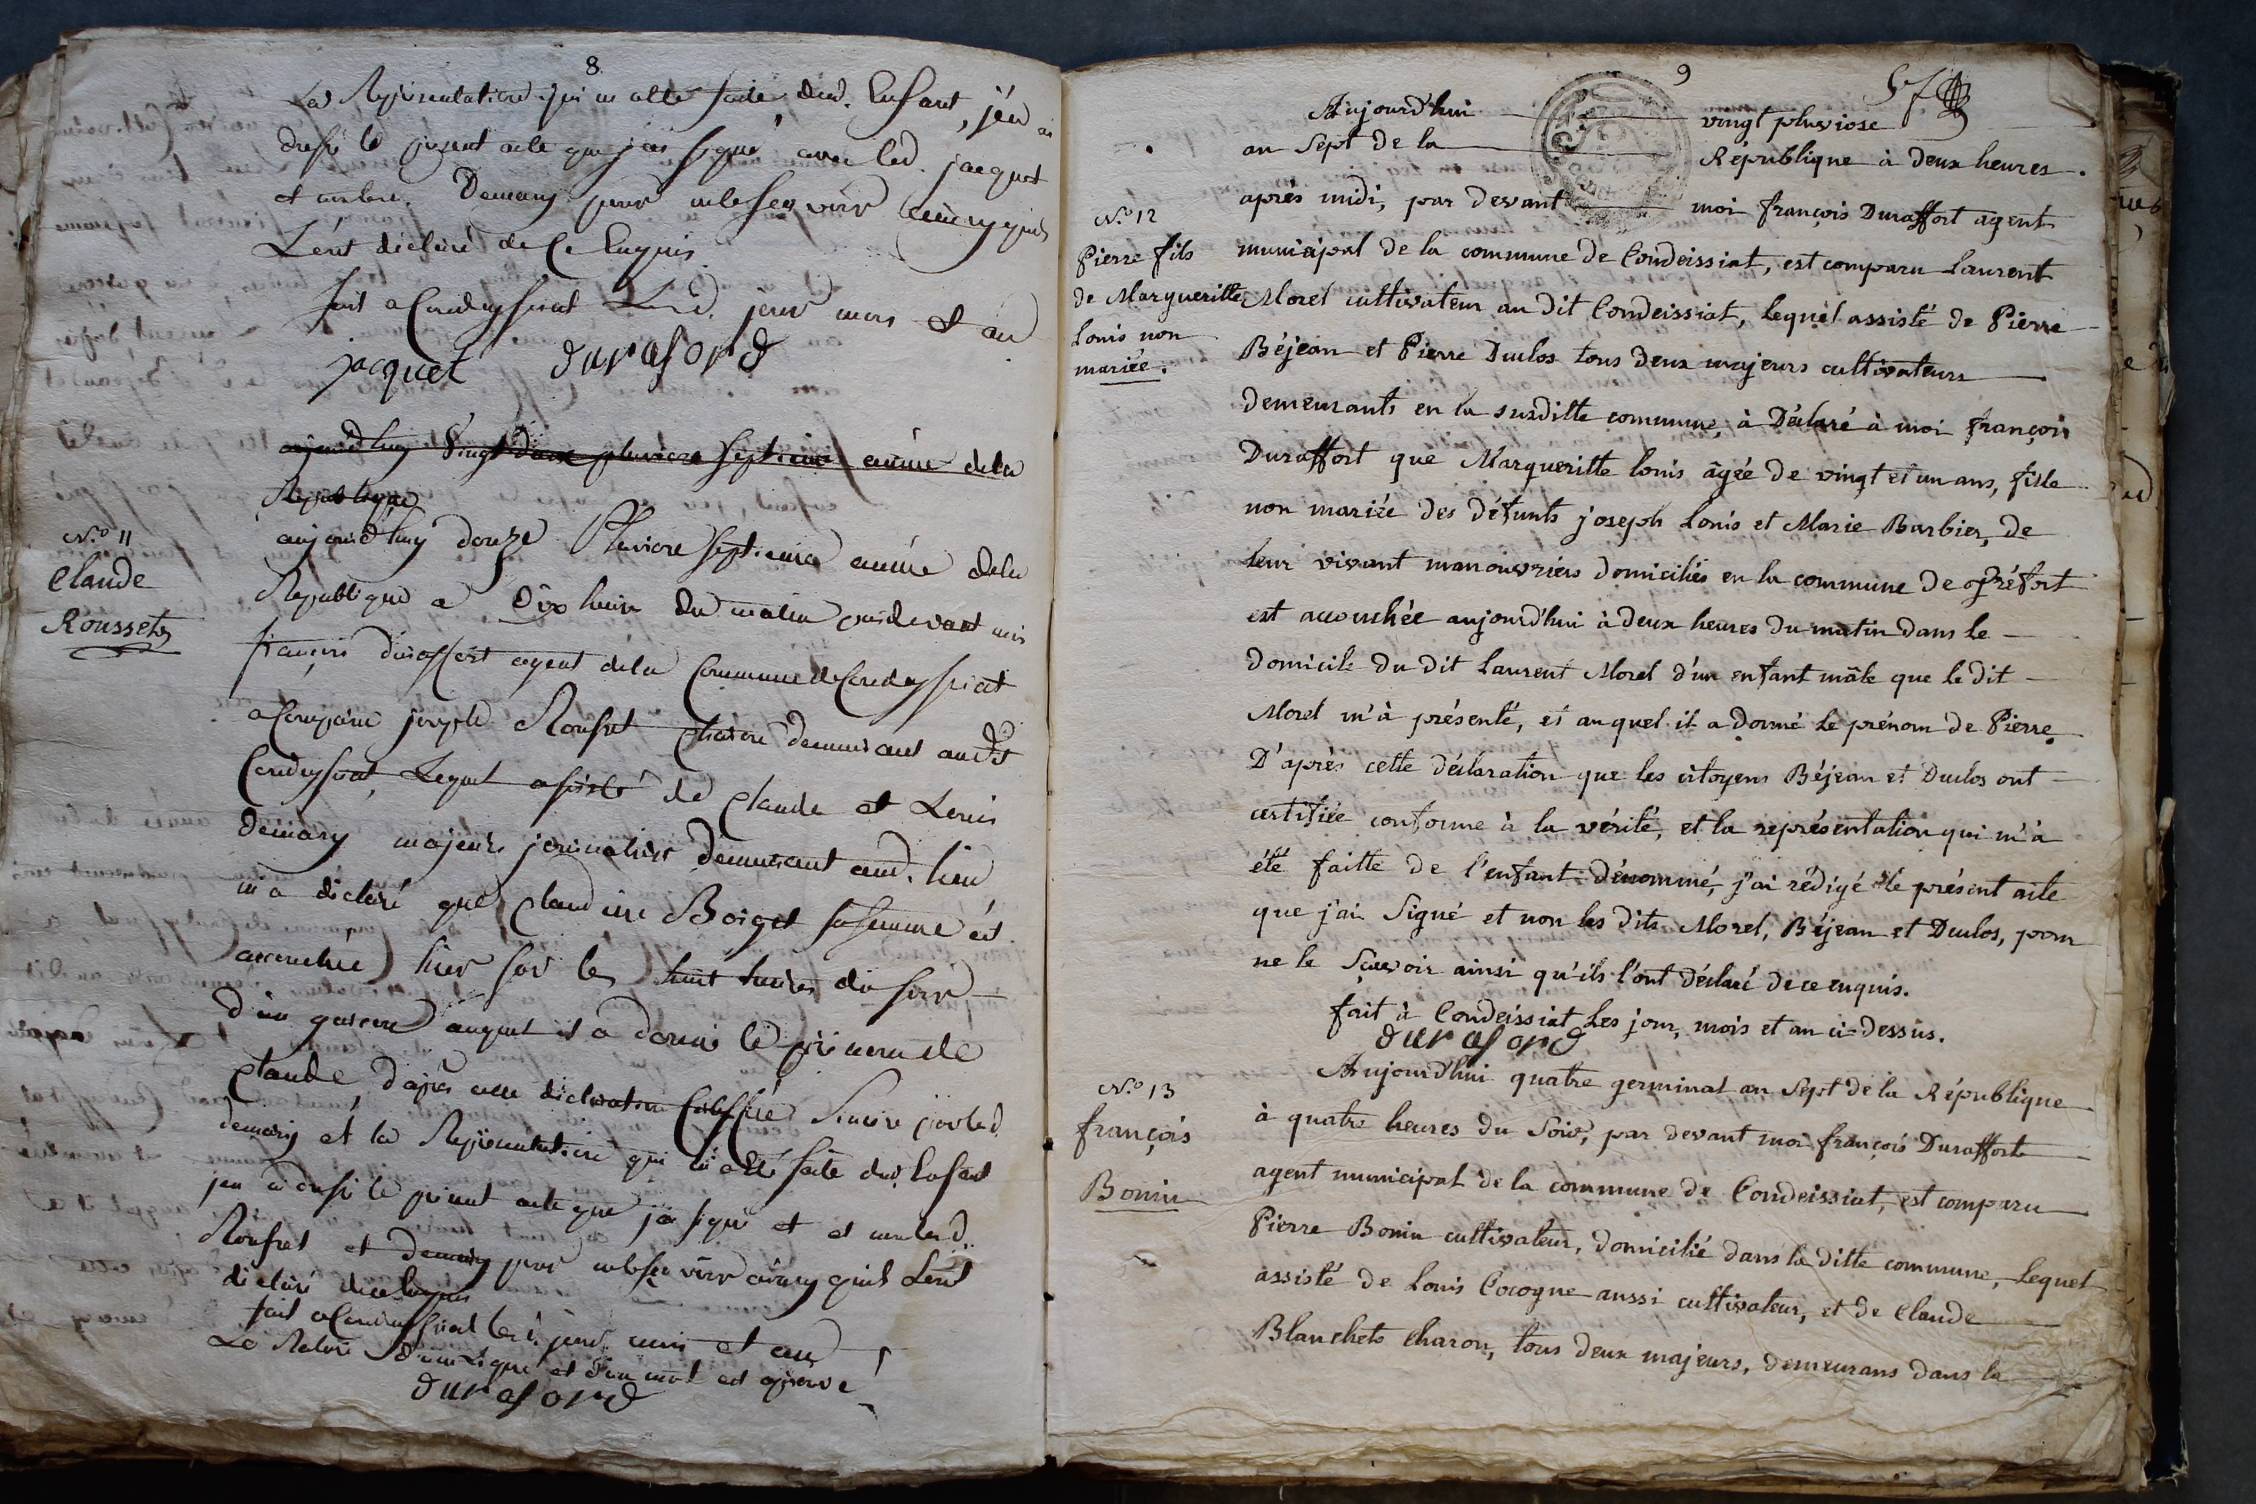 8
La Représentation qui m a été faite dud. Enfant, j'en ai
dressé le présent acte que j'ai signé avec led. jacquet
et non led. Demary pour ne le sçavoir ainsy quils
L'ont déclaré de Ce Enquis
fait a Condeyssiat Led. jour mois et an
jacquet durasord
aujourdhuy Vingt deux pluviose septieme année dela
Republique
N.o 11
Claude
Roussets
aujourdhuy douze Pluviose septieme année dela
Republique a dix heures du matin pardevant moi
françois duraffort agent dela Commune de Condeyssiat
a Comparu joseph Rousset Charon demeurant aud.
Condeyssiat, Lequel assisté de Claude et Louis
demary majeurs journaliers demeurant aud. lieu
m'a déclaré que Claudine Boiget sa femme est
accouchée hier sur les huit heures du soir
d'un garcon auquel il a donné le prénom de
Claude, d'après cette déclaration Certifié Sincère par led.
demary et la Représentation qui m'a été faite dud. Enfant
jen ai dressé le présent acte que j'ai signé et et non led.
Rousset et demary pour ne le sçavoir ainsy quils L'ont
déclaré de ce Enquis
fait a Condeyssiat led. jour mois et an
La Rature d'une Ligne et d'un mot est aprouvé
durasord
9
Aujourd'hui vingt pluviose
an Sept de la République à deux heures
après midi, par devant moi françois Duraffort agent
N.o 12
Pierre fils
de Margueritte
Louis non
mariée.
municipal de la commune de Condeissiat, est comparu Laurent
Morel cultivateur au dit Condeissiat, lequel assisté de Pierre
Béjean et Pierre Duclos tous deux majeurs cultivateurs
demeurants en la susditte commune, à Déclaré à moi françois
Duraffort que Margueritte Louis âgée de vingt et un ans, fille
non mariée des défunts joseph Louis et Marie Barbier, de
leur vivant manouvriers domiciliés en la commune de
est accouchée aujourd'hui à deux heures du matin dans le
domicile du dit Laurent Morel d'un enfant mâle que le dit
Morel m'à présenté, et auquel il a donné le prénom de Pierre
D'après cette déclaration que les citoyens Béjean et Duclos ont
certifiée conforme à la vérité, et la représentation qui m'à
été faitte de l'enfant dénommé, j'ai rédigé le présent acte
que j'ai Signé et non les dits Morel, Béjean et Duclos, pour
ne le Sçavoir ainsi qu'ils l'ont Déclaré de ce enquis.
fait à Condeissiat Les jour, mois et an ci-dessus.
durasord
N.o 13
françois
Bonin
Aujourd'hui quatre germinal an Sept de la République
à quatre heures du Soir, par devant moi françois Duraffort
agent municipal de la commune de Condeissiat, est comparu
Pierre Bonin cultivateur, domicilié dans la ditte commune, lequel
assisté de Louis Cocogne aussi cultivateur, et de Claude
Blanchets Charon, tous deux majeurs, demeurans dans la